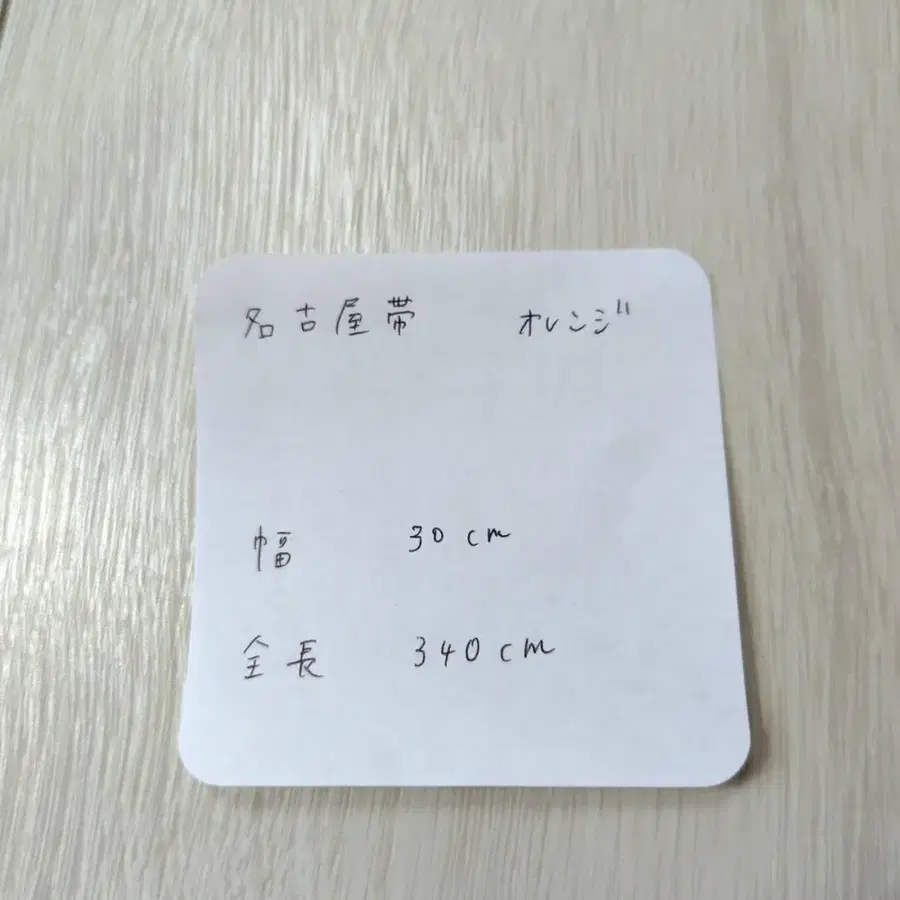 名古屋帯 オレンジ
幅 30cm
全長 340cm